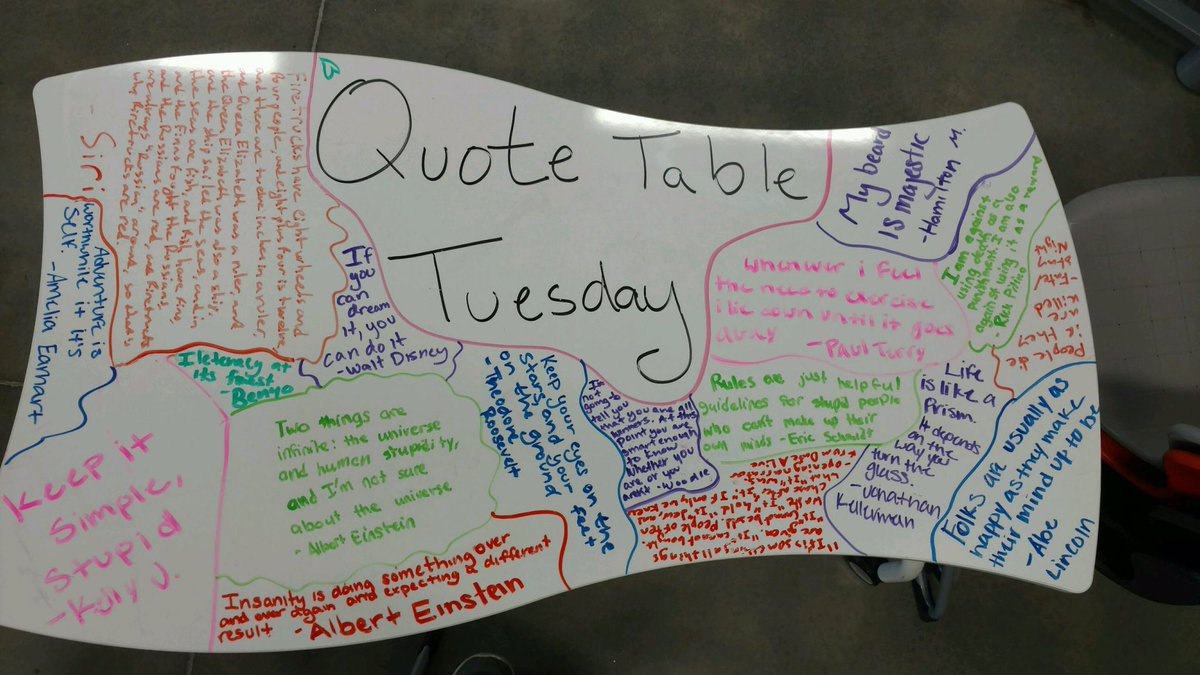 Quote Table
Tuesday
B
Firetrucks have eight wheels and
four people, and eight plus four is twelve,
and there are twelve inches in a ruler,
and Queen Elizabeth was a ruler, and
the Queen Elizabeth was also a ship,
and the ship sailed the seas, and in
the seas are fish, and fish have fins,
and the Finns fought the Russians,
and the Russians are red, and firetrucks
are always "Russian" around, so that's
why firetrucks are red.
- Siri
Adventure is
worthwhile it it's
self.
- Amelia Earhart
If
you
can
dream
it, you
can do it
- Walt Disney
I leteracy at
its finest
- Benyo
Keep it
Simple,
Stupid
- Kelly J.
Two things are
infinite: the universe
and human stupidity,
and I'm not sure
about the universe
- Albert Einstein
Insanity is doing something over
and over again and expecting a different
result - Albert Einstein
Keep your eyes on the
stars, and your feet
on the ground
- Theodore
Roosevelt
I'm
not
going to
tell you
that you are all
winners. At this
point you are
smart enough
to know
whether you
are or you
aren't - Woodie
My beard
is majestic
- Hamilton M.
I am against
using death as a
punishment. I am also
against using it as a reward
People die
if they
are killed
whenever i feel
the need to exercise
i lie down until it goes
away
- Paul Terry
Rules are just helpful
guidelines for stupid people
who can't make up their
own minds - Eric Schmidt
Life
is like a
Prism.
It depends
on the
way you
turn the
glass.
- Jonathan
Kellerman
Folks are usually as
happy as they make
their mind up to be
- Abe
Lincoln